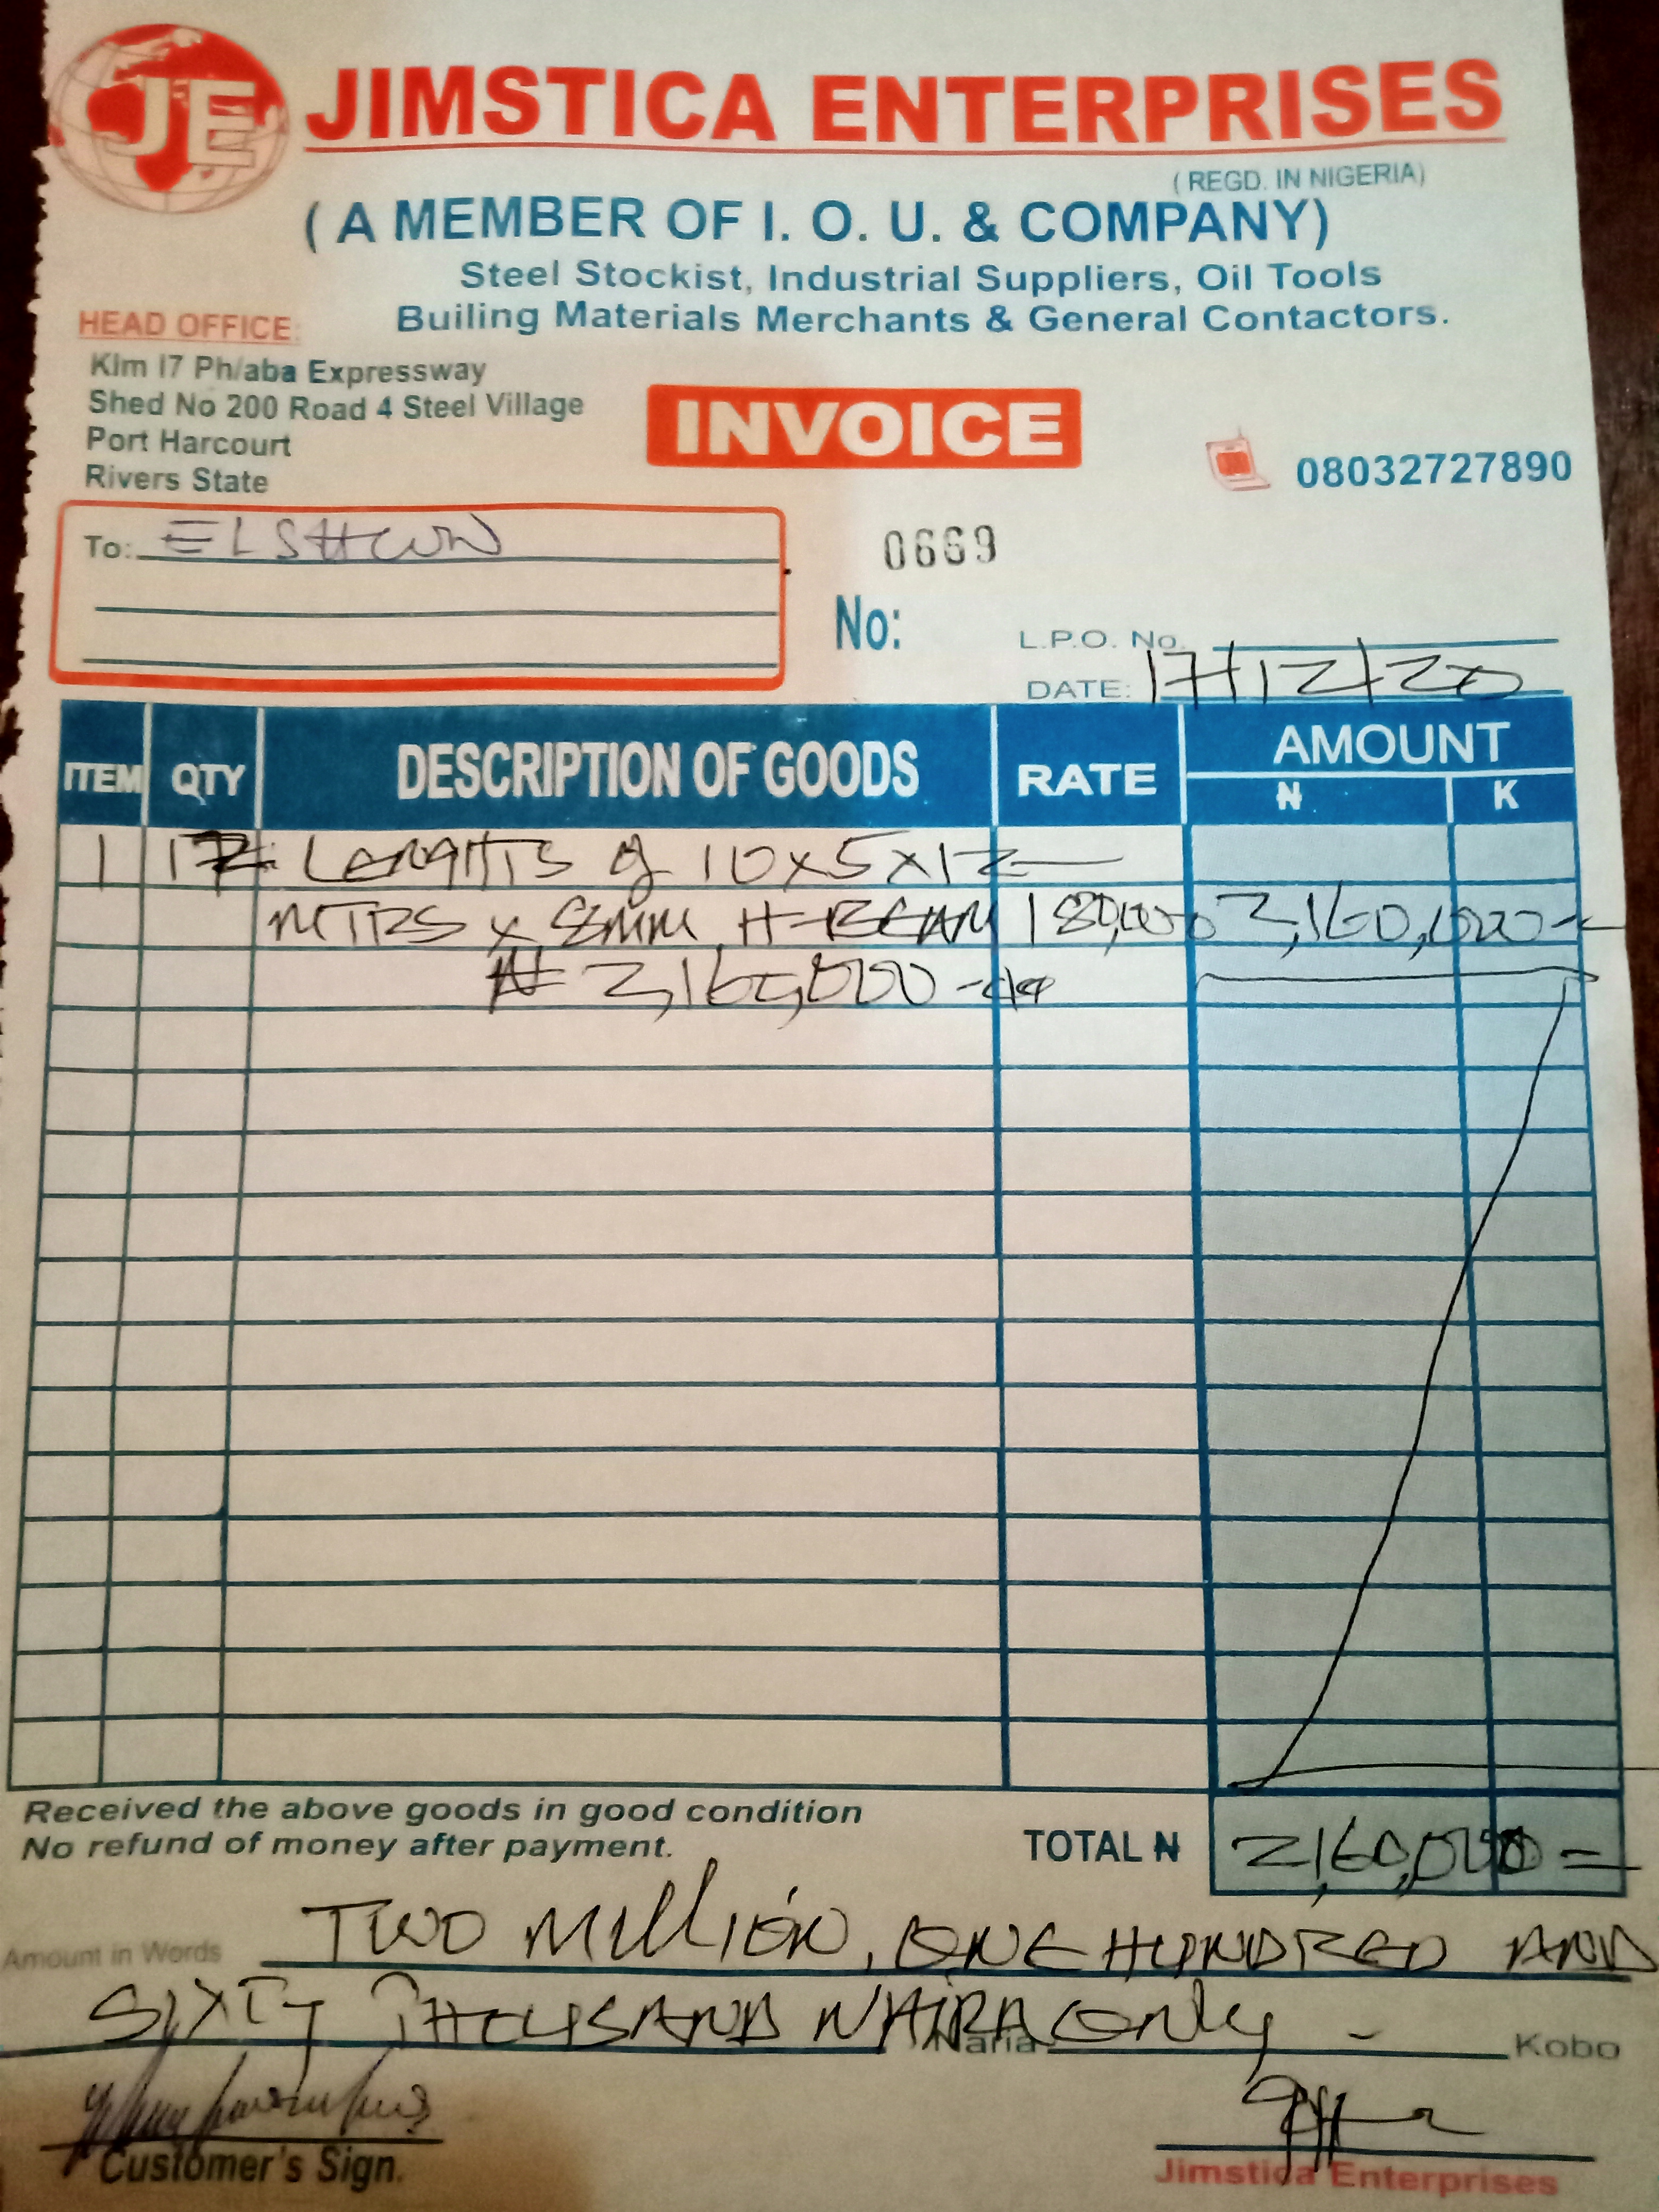 JE JIMSTICA ENTERPRISES
( REGD. IN NIGERIA)
( A MEMBER OF I. O. U. & COMPANY)
Steel Stockist, Industrial Suppliers, Oil Tools
Builing Materials Merchants & General Contactors.
HEAD OFFICE:
Klm 17 Ph/aba Expressway
Shed No 200 Road 4 Steel Village
Port Harcourt
Rivers State
INVOICE
08032727890
To: ELSHCON
0669
No:
L.P.O. No.
DATE: 17/12/20
ITEM QTY DESCRIPTION OF GOODS RATE AMOUNT
₦ K
1 12 LENGTHS of 10x5x12
MTRS x 8MM H-BEAM 180,000 2,160,000 =
₦ 2,160,000
Received the above goods in good condition
No refund of money after payment.
TOTAL ₦ 2,160,000 =
Amount in Words TWO MILLION, ONE HUNDRED AND
SIXTY THOUSAND NAIRA ONLY - Naria Kobo
Customer's Sign.
Jimstica Enterprises